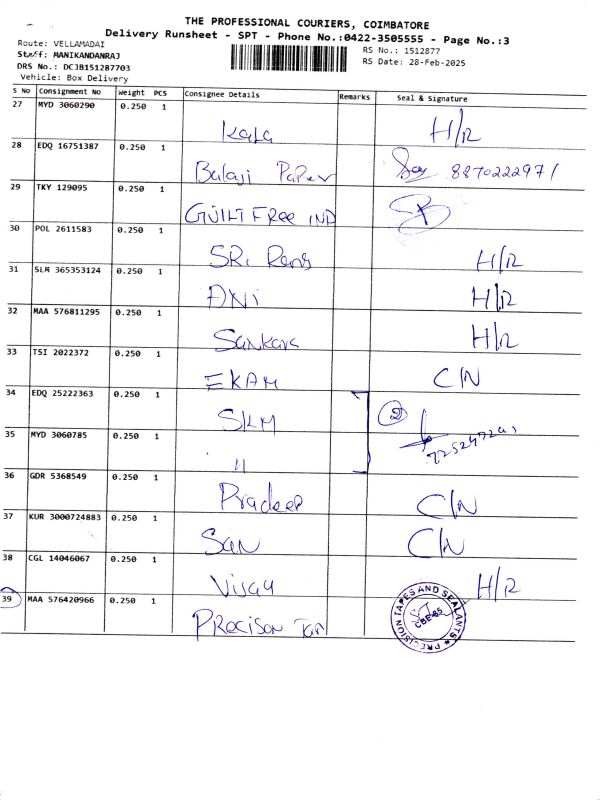 THE PROFESSIONAL COURIERS, COIMBATORE
Delivery Runsheet - SPT - Phone No.:0422-3505555 - Page No.:3
Route: VELLAMADAI
Staff: MANIKANDANRAJ
DRS No.: DCJB151287703
Vehicle: Box Delivery
RS No.: 1512877
RS Date: 28-Feb-2025
S No Consignment No Weight PCS Consignee Details Remarks Seal & Signature
27 MYD 3060290 0.250 1
Kala H/R
28 EDQ 16751387 0.250 1
Balaji Paper 8870222971
29 TKY 129095 0.250 1
GUILTFree IND
30 POL 2611583 0.250 1
SRi Rang H/R
31 SLM 365353124 0.250 1
ANi H/R
32 MAA 576811295 0.250 1
Sankara H/R
33 TSI 2022372 0.250 1
EKAM C/N
34 EDQ 25222363 0.250 1
SKM 2
35 MYD 3060785 0.250 1
"
36 GDR 5368549 0.250 1
Pradeep C/N
37 KUR 3000724883 0.250 1
San C/N
38 CGL 14046067 0.250 1
Vijay H/R
39 MAA 576420966 0.250 1
PRECison Tap
PRECISION TAPES AND SEALANTS
CBE-35